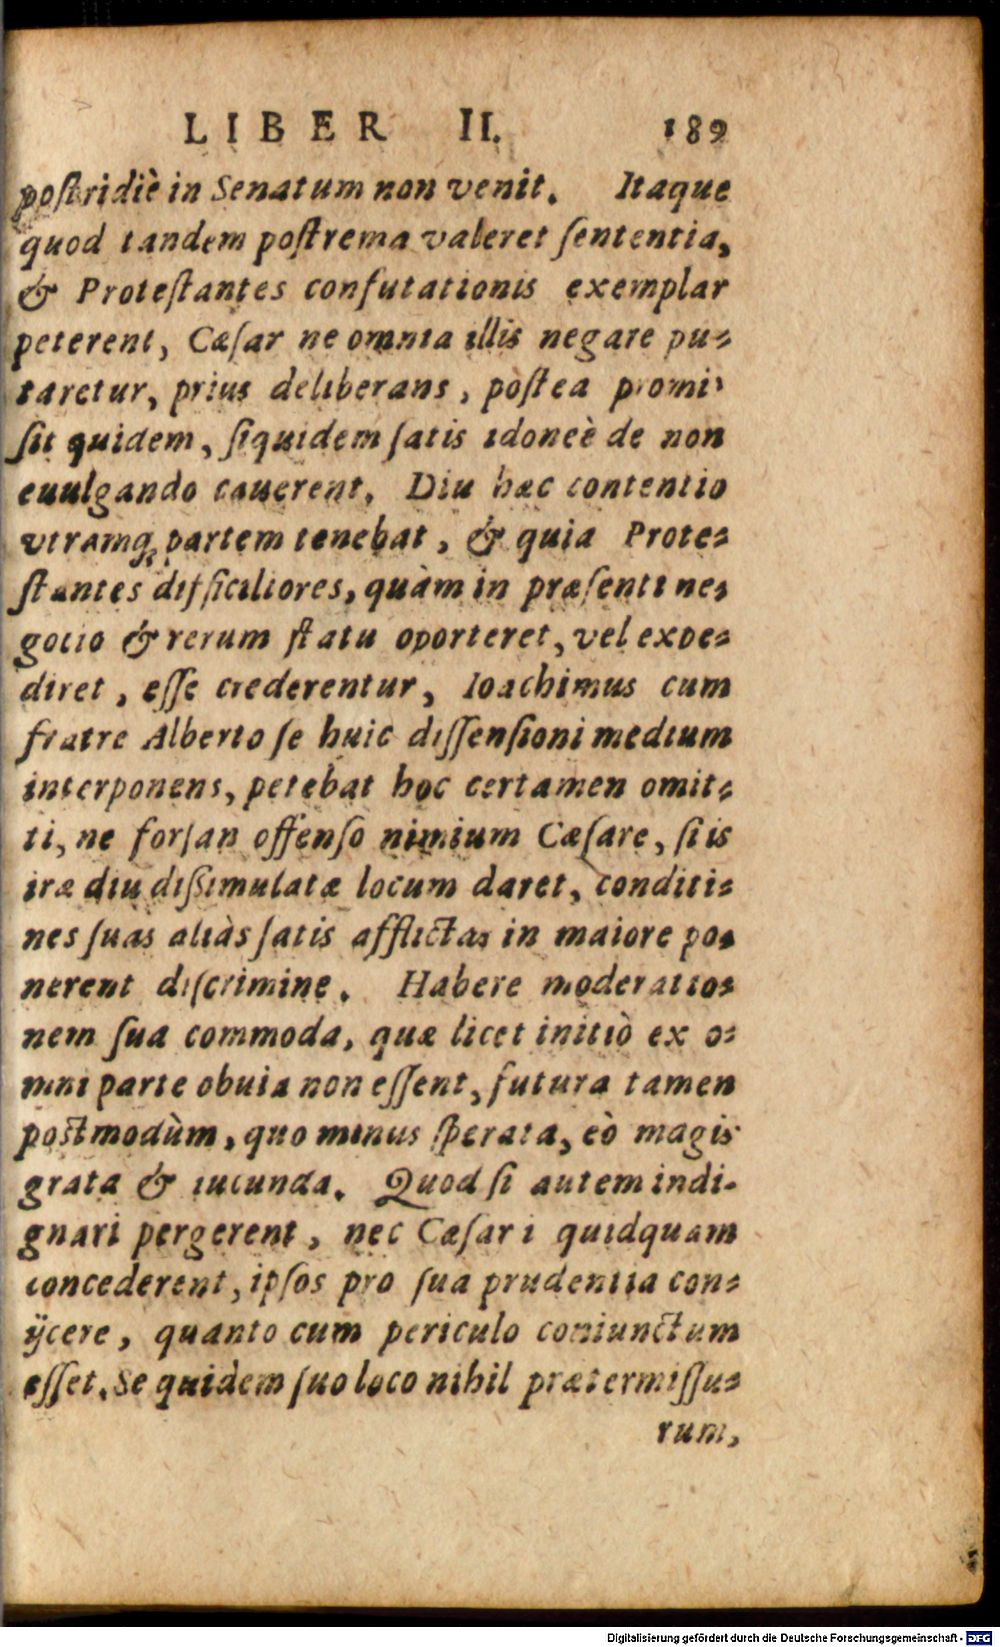 LIBER II. 189
poſtridiè in Senatum non venit. Itaque
quod tandem poſtrema valeret ſententia,
& Proteſtantes confutationis exemplar
peterent, Cæſar ne omnia illis negare pu-
taretur, prius deliberans, poſtea promi-
ſit quidem, ſiquidem ſatis idoneè de non
euulgando cauerent. Diu hæc contentio
vtramq; partem tenebat, & quia Prote-
ſtantes difficiliores, quàm in præſenti ne-
gotio & rerum ſtatu oporteret, vel expe-
diret, eſſe crederentur, Ioachimus cum
fratre Alberto ſe huic diſſenſioni medium
interponens, petebat hoc certamen omit-
ti, ne forſan offenſo nimium Cæſare, ſi is
iræ diu diſſimulatæ locum daret, conditi-
nes ſuas aliàs ſatis afflictas in maiore po-
nerent diſcrimine. Habere moderatio-
nem ſua commoda, quæ licet initiò ex o-
mni parte obuia non eſſent, futura tamen
poſtmodùm, quo minus ſperata, eò magis
grata & iucunda. Quod ſi autem indi-
gnari pergerent, nec Cæſari quidquam
concederent, ipſos pro ſua prudentia con-
ijcere, quanto cum periculo coniunctum
eſſet. Se quidem ſuo loco nihil prætermiſſu-
rum,
Digitalisierung gefördert durch die Deutsche Forschungsgemeinschaft - DFG